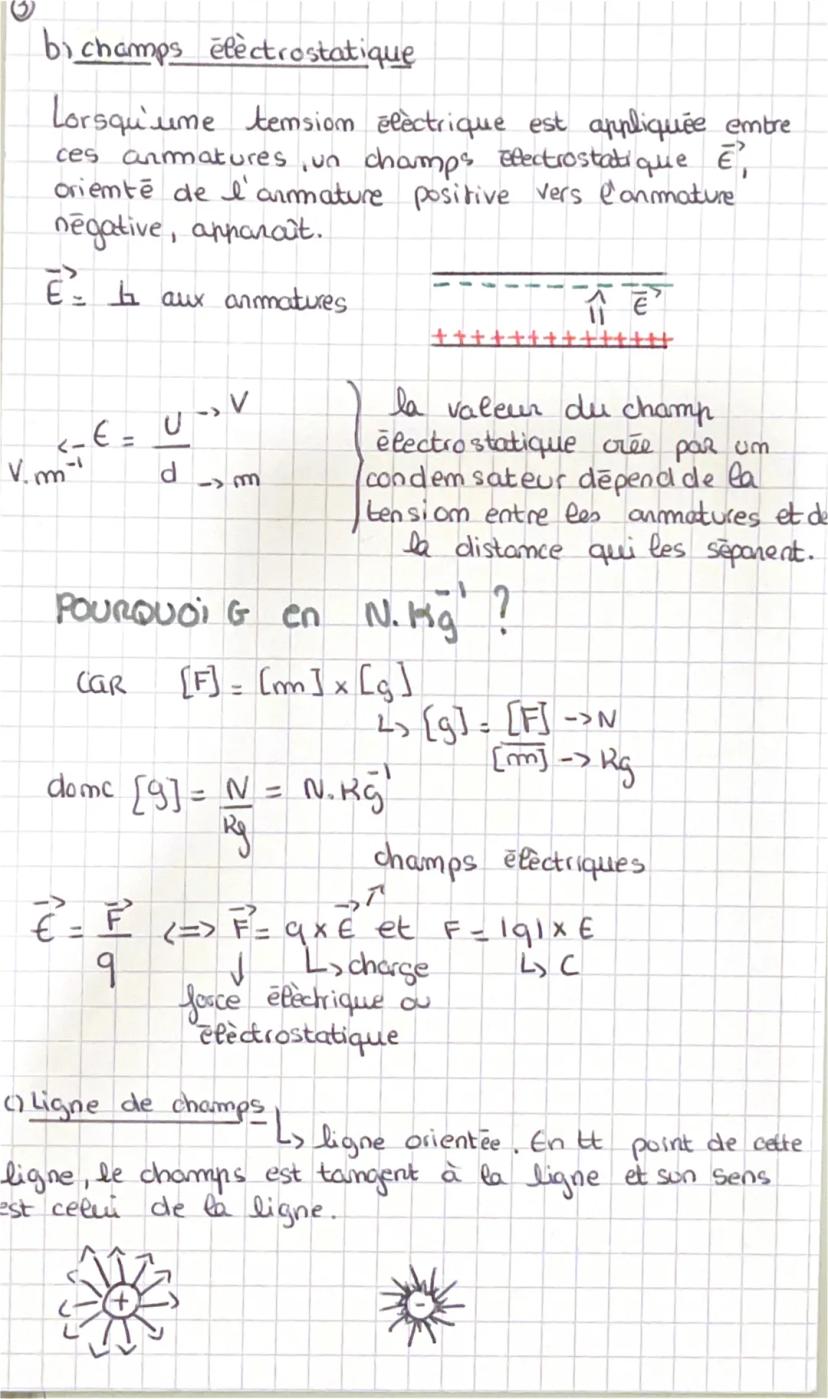 ③
b) champs électrostatique
Lorsqu'une tension électrique est appliquée entre
ces armatures, un champs électrostatique E→,
orienté de l'armature positive vers l'armature
négative, apparaît.
E→ = ⊥ aux armatures
- - - - - - - - - - - -
⇑ E→
+ + + + + + + + + + + + + +
V.m⁻¹ <- E = U/d -> V -> m
la valeur du champ
électrostatique crée par un
condensateur dépend de la
tension entre les armatures et de
la distance qui les séparent.
POURQUOI G en N.Kg⁻¹ ?
CAR [F] = [m] × [g]
↳ [g] = [F]/[m] -> N -> Kg
donc [g] = N/Kg = N.Kg⁻¹
champs électriques
E→ = F→/q <=> F→ = q × E→ et F = |q| × E
↳ charge ↳ C
force électrique ou
électrostatique
c) Ligne de champs
↳ ligne orientée. En tt point de cette
ligne, le champs est tangent à la ligne et son sens
est celui de la ligne.
+ -